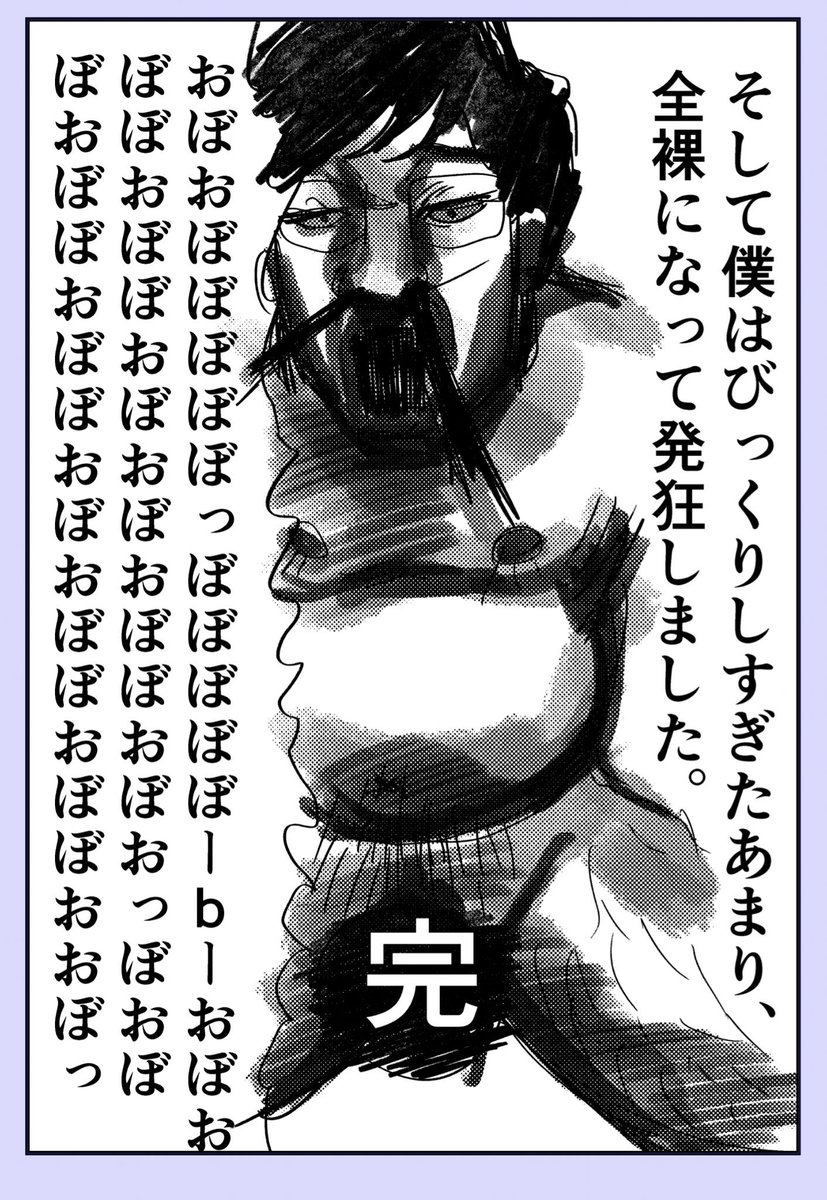 そして僕はびっくりしすぎたあまり、
全裸になって発狂しました。
おぼおぼぼぼぼぼっぼぼぼぼぼーbーおぼお
ぼぼおぼぼおぼおぼおぼぼおぼおっぼおぼ
ぼおぼぼおぼぼおぼおぼぼおぼぼおおぼっ
完